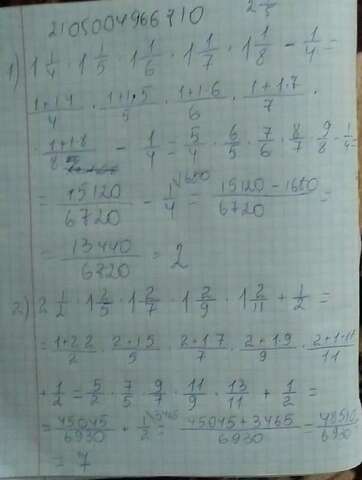 2105004966710
1) 1 1/4 · 1 1/5 · 1 1/6 · 1 1/7 · 1 1/8 - 1/4 =
(1+1·4)/4 · (1+1·5)/5 · (1+1·6)/6 · (1+1·7)/7 ·
· (1+1·8)/8 - 1/4 = 5/4 · 6/5 · 7/6 · 8/7 · 9/8 - 1/4 =
= 15120/6720 - 1/4 \1680 = (15120-1680)/6720 =
= 13440/6720 = 2
2) 2 1/2 · 1 2/5 · 1 2/7 · 1 2/9 · 1 2/11 + 1/2 =
= (1+2·2)/2 · (2+1·5)/5 · (2+1·7)/7 · (2+1·9)/9 · (2+1·11)/11
+ 1/2 = 5/2 · 7/5 · 9/7 · 11/9 · 13/11 + 1/2 =
= 45045/6930 + 1/2 \3465 = (45045+3465)/6930 = 48510/6930
= 7